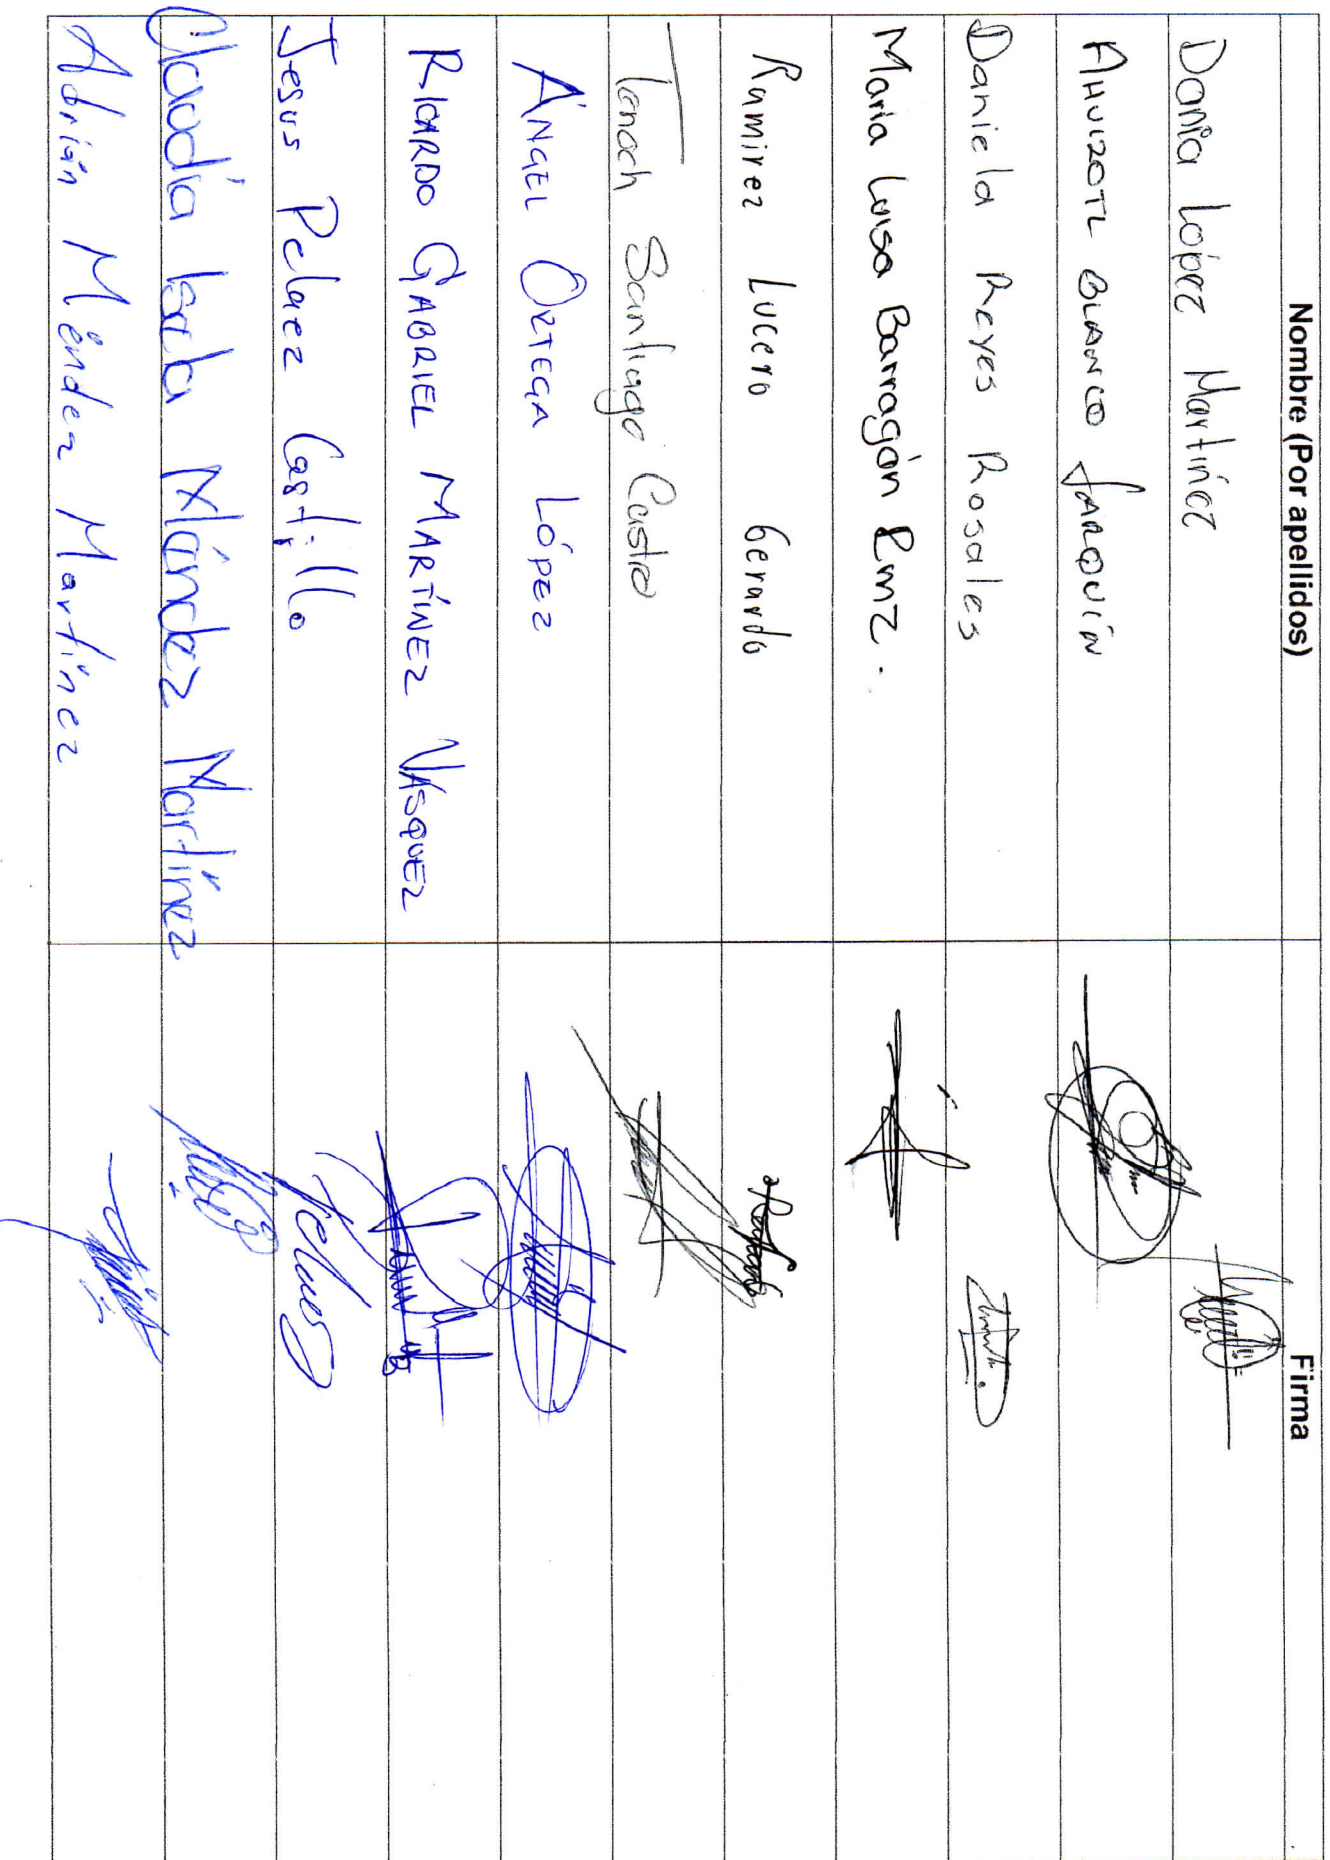 Nombre (Por apellidos) Firma
Dania López Martínez
AHUIZOTL BLANCO JARQUÍN
Daniela Reyes Rosales
Maria Luisa Barragán Rmz.
Ramirez Lucero Gerardo
Tenoch Santiago Castro
ÁNGEL ORTEGA LÓPEZ
RICARDO GABRIEL MARTÍNEZ VÁSQUEZ
Jesus Pelaez Castillo Pelaez
Claudia Méndez Martínez
Adrián Méndez Martínez